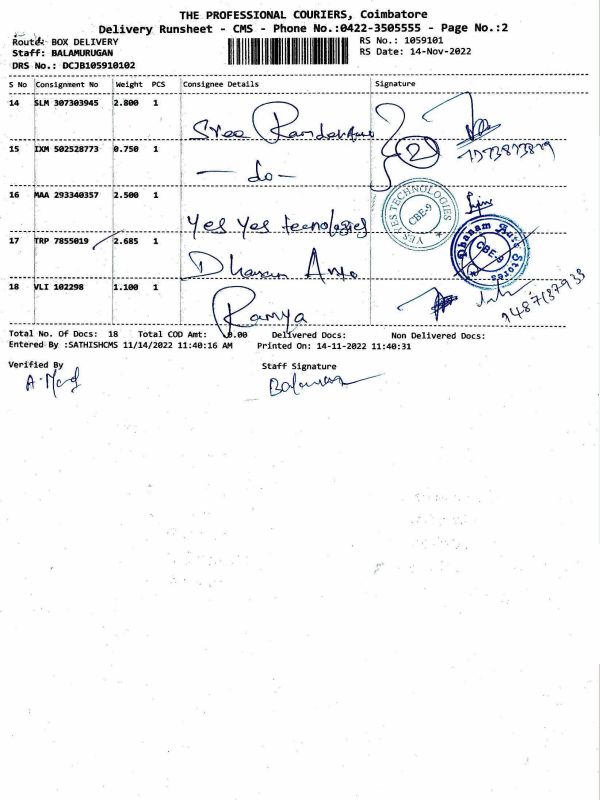 THE PROFESSIONAL COURIERS, Coimbatore
Delivery Runsheet - CMS - Phone No.:0422-3505555 - Page No.:2
Route: BOX DELIVERY
RS No.: 1059101
Staff: BALAMURUGAN
RS Date: 14-Nov-2022
DRS No.: DCJB105910102
S No Consignment No Weight PCS Consignee Details Signature
14 SLM 307303945 2.800 1
Sree
15 IXM 502528773 0.750 1
2
- do -
16 MAA 293340357 2.500 1
YES YES TECHNOLOGIES
CBE-9
Yes Yes tecnologies
17 TRP 7855019 2.685 1
Dhanam Auto Stores
CBE-9
Dhanam Auto
18 VLI 102298 1.100 1
Ramya
9487187933
Total No. Of Docs: 18 Total COD Amt: 0.00 Delivered Docs: Non Delivered Docs:
Entered By :SATHISHCMS 11/14/2022 11:40:16 AM Printed On: 14-11-2022 11:40:31
Verified By Staff Signature